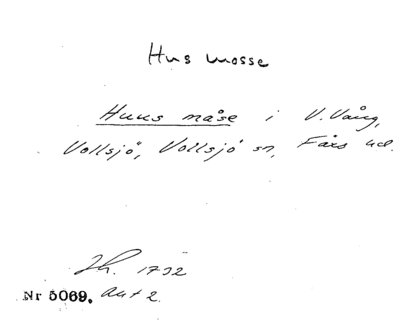 Hus mosse
Huus måse i V. Vång,
Vollsjö, Vollsjö sn, Färs hd.
Lh. 1732
Nr 5069. Akt 2.